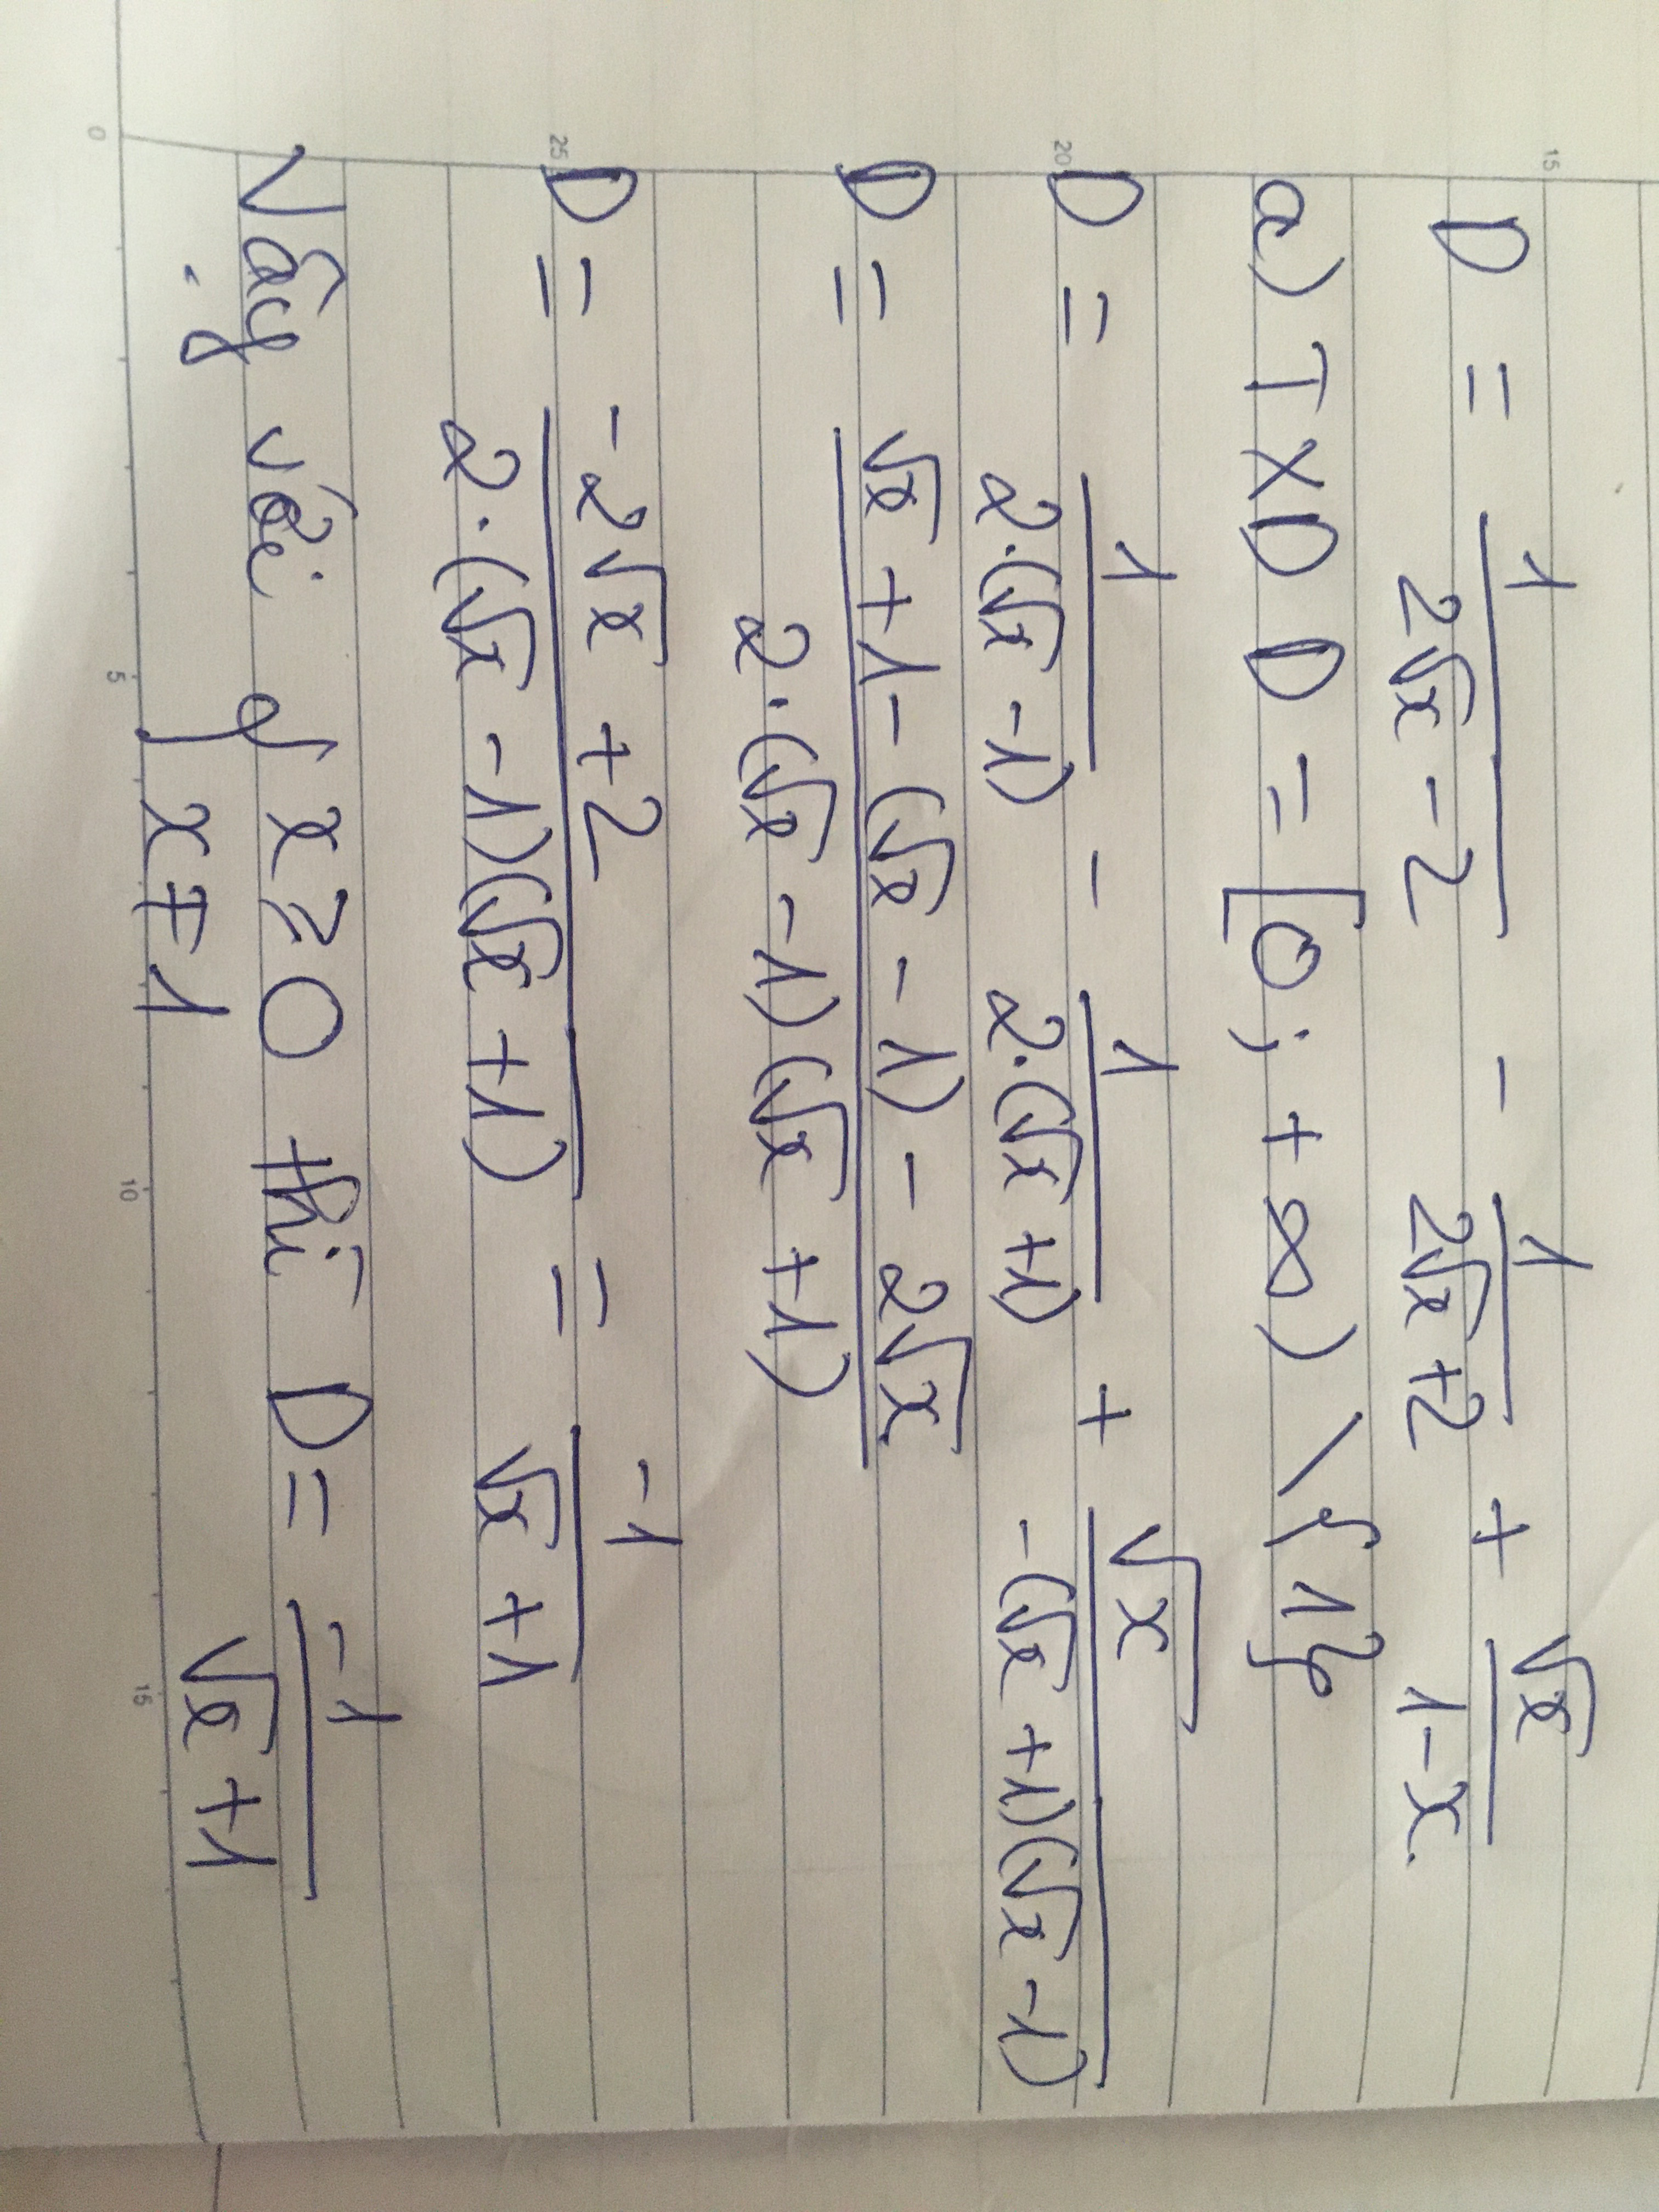 D = 1/(2√x - 2) - 1/(2√x + 2) + √x/(1 - x).
a) TXD D = [0; +∞) \ {1}
D = 1/(2.(√x - 1)) - 1/(2.(√x + 1)) + √x/(-(√x + 1)(√x - 1))
D = (√x + 1 - (√x - 1) - 2√x)/(2.(√x - 1)(√x + 1))
D = (-2√x + 2)/(2.(√x - 1)(√x + 1)) = -1/(√x + 1)
Vậy với { x ≥ 0 thì D = -1/(√x + 1)
x ≠ 1
15
20
25
0 5 10 15